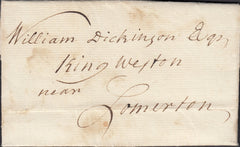 William Dickinson Esqr
King Weston
near
Somerton